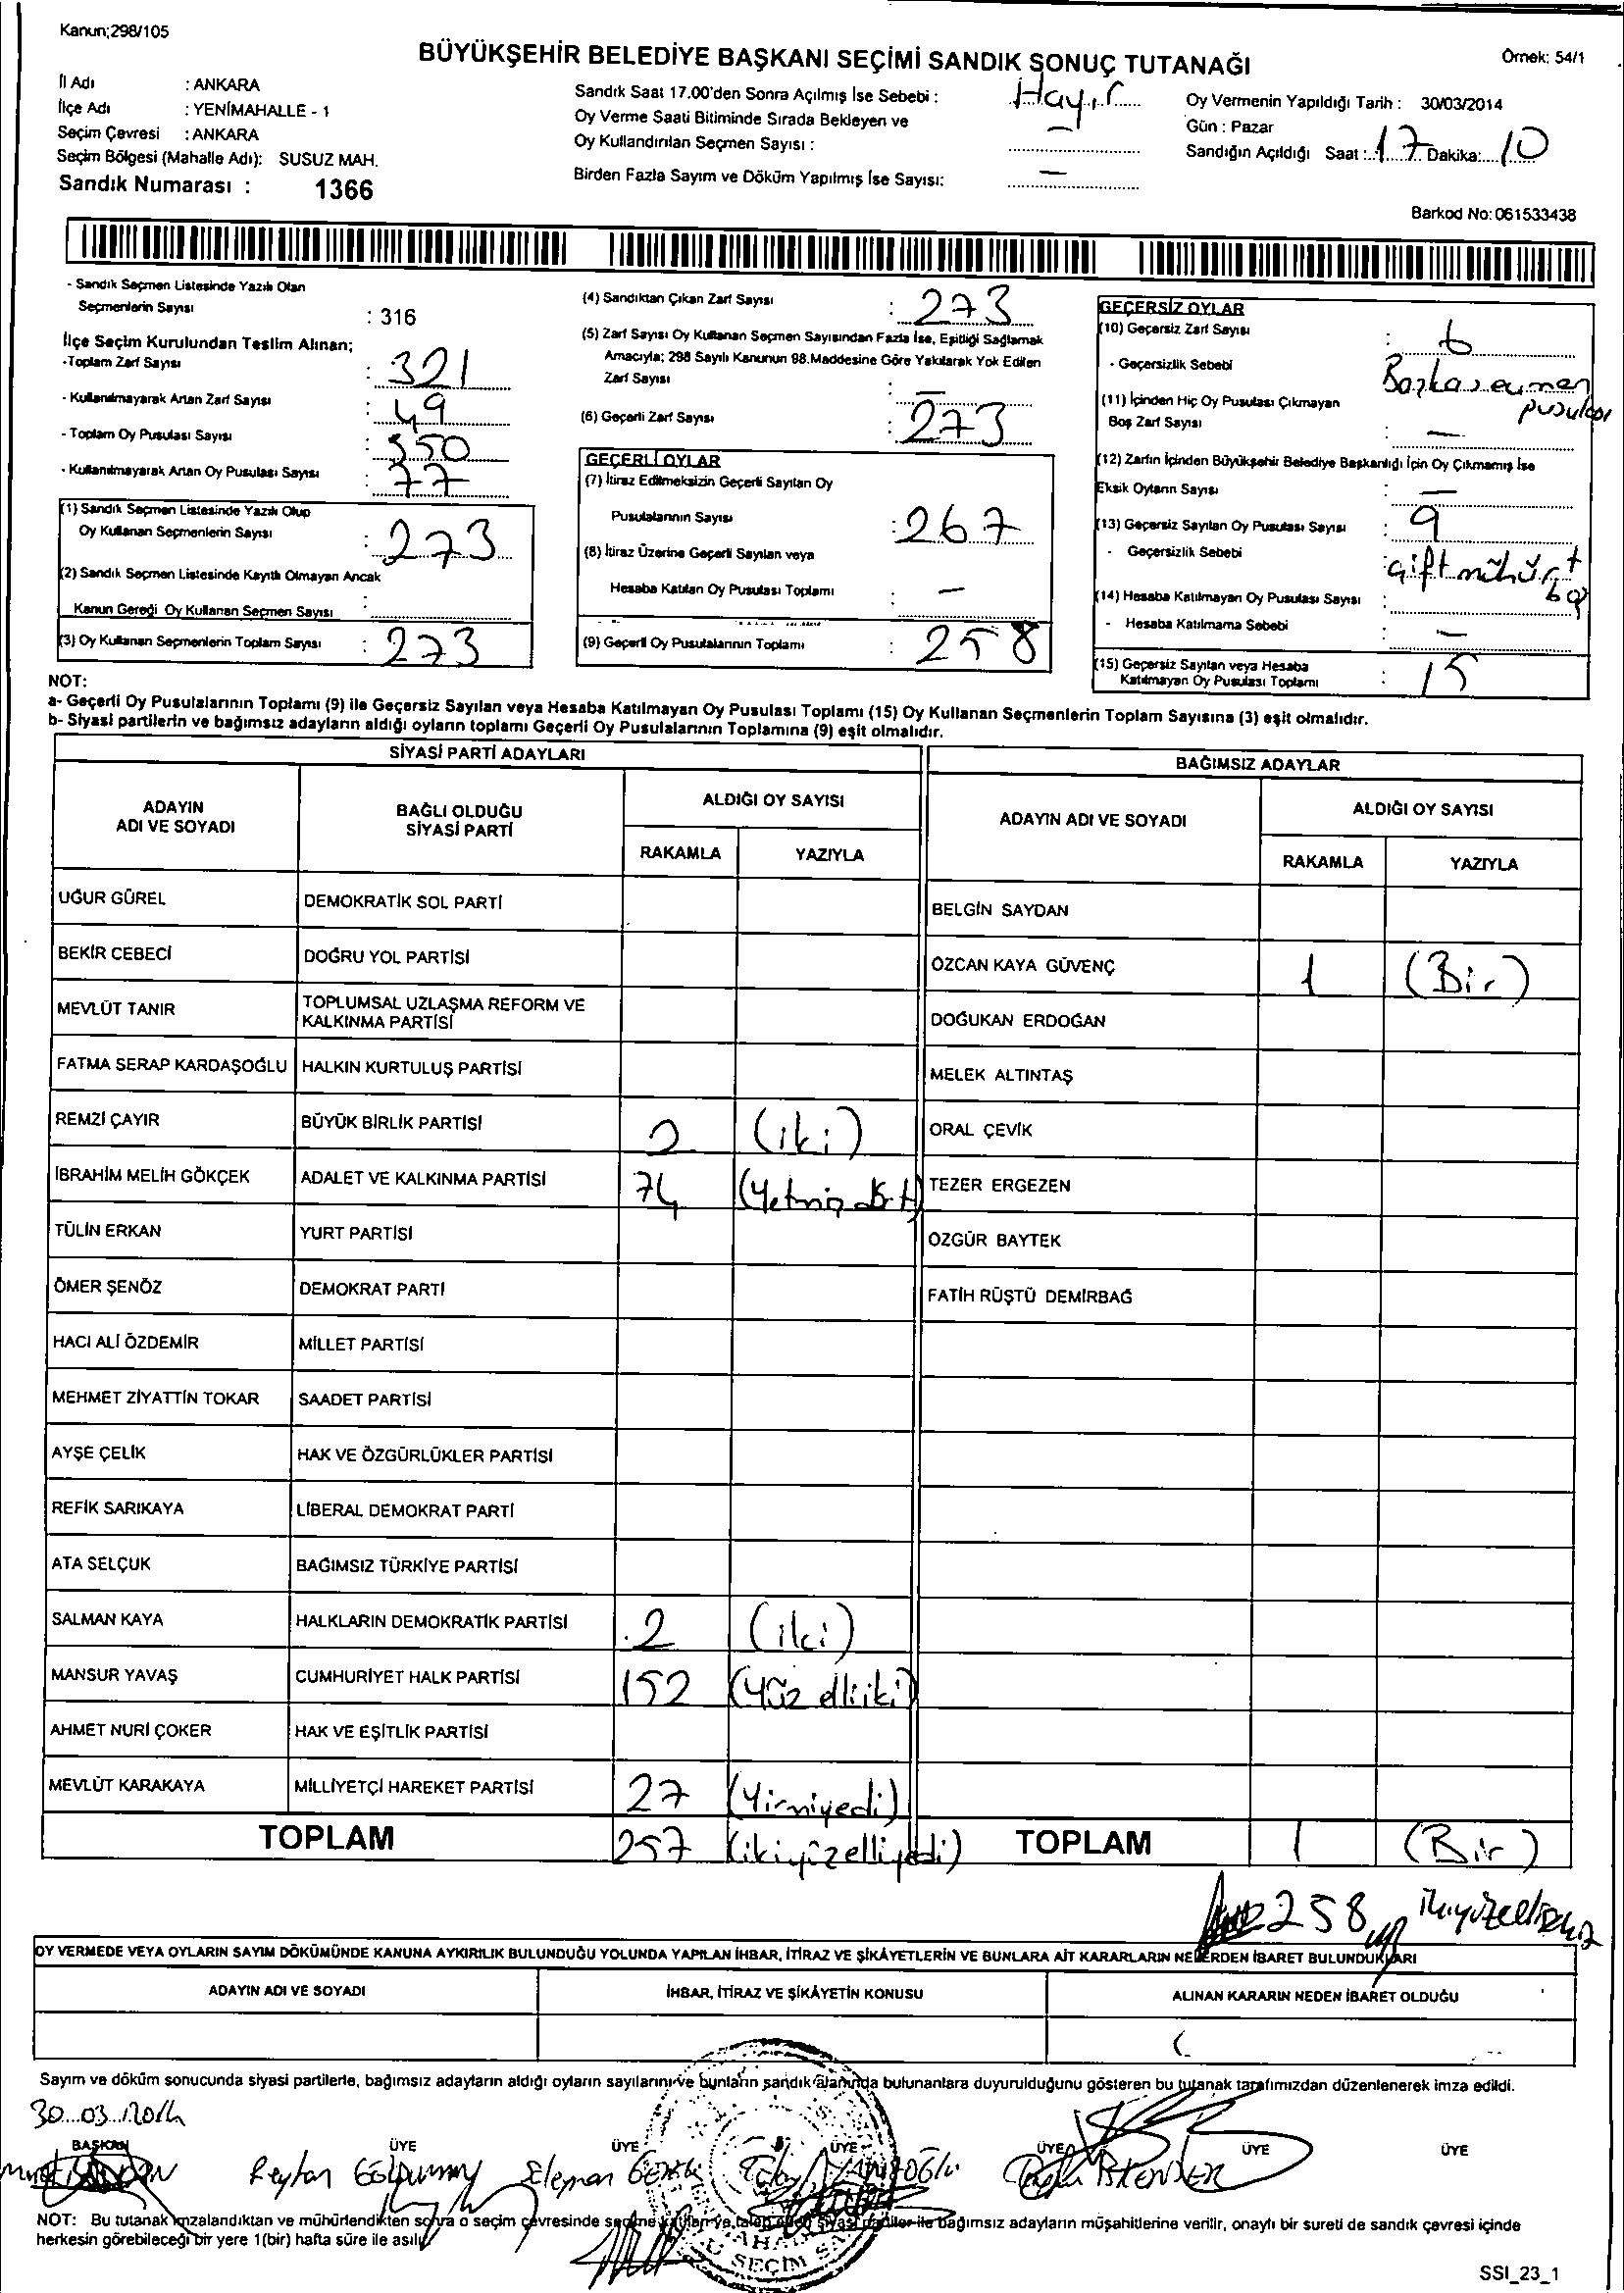 Kanun;298/105
BÜYÜKŞEHİR BELEDİYE BAŞKANI SEÇİMİ SANDIK SONUÇ TUTANAĞI
Örnek: 54/1
İl Adı : ANKARA
İlçe Adı : YENİMAHALLE - 1
Seçim Çevresi : ANKARA
Seçim Bölgesi (Mahalle Adı): SUSUZ MAH.
Sandık Numarası : 1366
Sandık Saat 17.00'den Sonra Açılmış İse Sebebi : Hayır
Oy Verme Saati Bitiminde Sırada Bekleyen ve
Oy Kullandırılan Seçmen Sayısı : —
Birden Fazla Sayım ve Döküm Yapılmış İse Sayısı: —
Oy Vermenin Yapıldığı Tarih : 30/03/2014
Gün : Pazar
Sandığın Açıldığı Saat : 17 Dakika: 10
Barkod No: 061533438
- Sandık Seçmen Listesinde Yazılı Olan
Seçmenlerin Sayısı : 316
İlçe Seçim Kurulundan Teslim Alınan;
-Toplam Zarf Sayısı : 321
- Kullanılmayarak Artan Zarf Sayısı : 49
- Toplam Oy Pusulası Sayısı : 350
- Kullanılmayarak Artan Oy Pusulası Sayısı : 77
(1) Sandık Seçmen Listesinde Yazılı Olup
Oy Kullanan Seçmenlerin Sayısı : 273
(2) Sandık Seçmen Listesinde Kayıtlı Olmayan Ancak
Kanun Gereği Oy Kullanan Seçmen Sayısı :
(3) Oy Kullanan Seçmenlerin Toplam Sayısı : 273
(4) Sandıktan Çıkan Zarf Sayısı : 273
(5) Zarf Sayısı Oy Kullanan Seçmen Sayısından Fazla İse, Eşitliği Sağlamak
Amacıyla; 298 Sayılı Kanunun 98.Maddesine Göre Yakılarak Yok Edilen
Zarf Sayısı : —
(6) Geçerli Zarf Sayısı : 273
GEÇERLİ OYLAR
(7) İtiraz Edilmeksizin Geçerli Sayılan Oy
Pusulalarının Sayısı : 267
(8) İtiraz Üzerine Geçerli Sayılan veya
Hesaba Katılan Oy Pusulası Toplamı : —
(9) Geçerli Oy Pusulalarının Toplamı : 258
GEÇERSİZ OYLAR
(10) Geçersiz Zarf Sayısı : 6
- Geçersizlik Sebebi Başka seçmen
pusulası
(11) İçinden Hiç Oy Pusulası Çıkmayan
Boş Zarf Sayısı : —
(12) Zarfın İçinden Büyükşehir Belediye Başkanlığı İçin Oy Çıkmamış İse
Eksik Oyların Sayısı : —
(13) Geçersiz Sayılan Oy Pusulası Sayısı : 9
- Geçersizlik Sebebi : çift mühür +
(14) Hesaba Katılmayan Oy Pusulası Sayısı :
- Hesaba Katılmama Sebebi : —
(15) Geçersiz Sayılan veya Hesaba
Katılmayan Oy Pusulası Toplamı : 15
NOT:
a- Geçerli Oy Pusulalarının Toplamı (9) ile Geçersiz Sayılan veya Hesaba Katılmayan Oy Pusulası Toplamı (15) Oy Kullanan Seçmenlerin Toplam Sayısına (3) eşit olmalıdır.
b- Siyasi partilerin ve bağımsız adayların aldığı oyların toplamı Geçerli Oy Pusulalarının Toplamına (9) eşit olmalıdır.
SİYASİ PARTİ ADAYLARI
ADAYIN ADI VE SOYADI BAĞLI OLDUĞU SİYASİ PARTİ ALDIĞI OY SAYISI
RAKAMLA YAZIYLA
UĞUR GÜREL DEMOKRATİK SOL PARTİ
BEKİR CEBECİ DOĞRU YOL PARTİSİ
MEVLÜT TANIR TOPLUMSAL UZLAŞMA REFORM VE KALKINMA PARTİSİ
FATMA SERAP KARDAŞOĞLU HALKIN KURTULUŞ PARTİSİ
REMZİ ÇAYIR BÜYÜK BİRLİK PARTİSİ 2 (iki)
İBRAHİM MELİH GÖKÇEK ADALET VE KALKINMA PARTİSİ 74 (Yetmiş dört)
TÜLİN ERKAN YURT PARTİSİ
ÖMER ŞENÖZ DEMOKRAT PARTİ
HACI ALİ ÖZDEMİR MİLLET PARTİSİ
MEHMET ZİYATTİN TOKAR SAADET PARTİSİ
AYŞE ÇELİK HAK VE ÖZGÜRLÜKLER PARTİSİ
REFİK SARIKAYA LİBERAL DEMOKRAT PARTİ
ATA SELÇUK BAĞIMSIZ TÜRKİYE PARTİSİ
SALMAN KAYA HALKLARIN DEMOKRATİK PARTİSİ 2 (iki)
MANSUR YAVAŞ CUMHURİYET HALK PARTİSİ 152 (Yüz elli iki)
AHMET NURİ ÇOKER HAK VE EŞİTLİK PARTİSİ
MEVLÜT KARAKAYA MİLLİYETÇİ HAREKET PARTİSİ 27 (Yirmiyedi)
TOPLAM 257 (ikiyüzelliyedi)
BAĞIMSIZ ADAYLAR
ADAYIN ADI VE SOYADI ALDIĞI OY SAYISI
RAKAMLA YAZIYLA
BELGİN SAYDAN
ÖZCAN KAYA GÜVENÇ 1 (Bir)
DOĞUKAN ERDOĞAN
MELEK ALTINTAŞ
ORAL ÇEVİK
TEZER ERGEZEN
ÖZGÜR BAYTEK
FATİH RÜŞTÜ DEMİRBAĞ
TOPLAM 1 (Bir)
258 ikiyüzellisekiz
OY VERMEDE VEYA OYLARIN SAYIM DÖKÜMÜNDE KANUNA AYKIRILIK BULUNDUĞU YOLUNDA YAPILAN İHBAR, İTİRAZ VE ŞİKÂYETLERİN VE BUNLARA AİT KARARLARIN NELERDEN İBARET BULUNDUKLARI
ADAYIN ADI VE SOYADI İHBAR, İTİRAZ VE ŞİKÂYETİN KONUSU ALINAN KARARIN NEDEN İBARET OLDUĞU
Sayım ve döküm sonucunda siyasi partilerle, bağımsız adayların aldığı oyların sayılarını ve bunların sandık alanında bulunanlara duyurulduğunu gösteren bu tutanak tarafımızdan düzenlenerek imza edildi.
30.03.2014
BAŞKAN ÜYE ÜYE ÜYE ÜYE ÜYE ÜYE
NOT: Bu tutanak imzalandıktan ve mühürlendikten sonra o seçim çevresinde seçime katılan ve talep eden siyasi partiler ile bağımsız adayların müşahitlerine verilir, onaylı bir sureti de sandık çevresi içinde
herkesin görebileceği bir yere 1(bir) hafta süre ile asılır.
SEÇİM
SSI_23_1